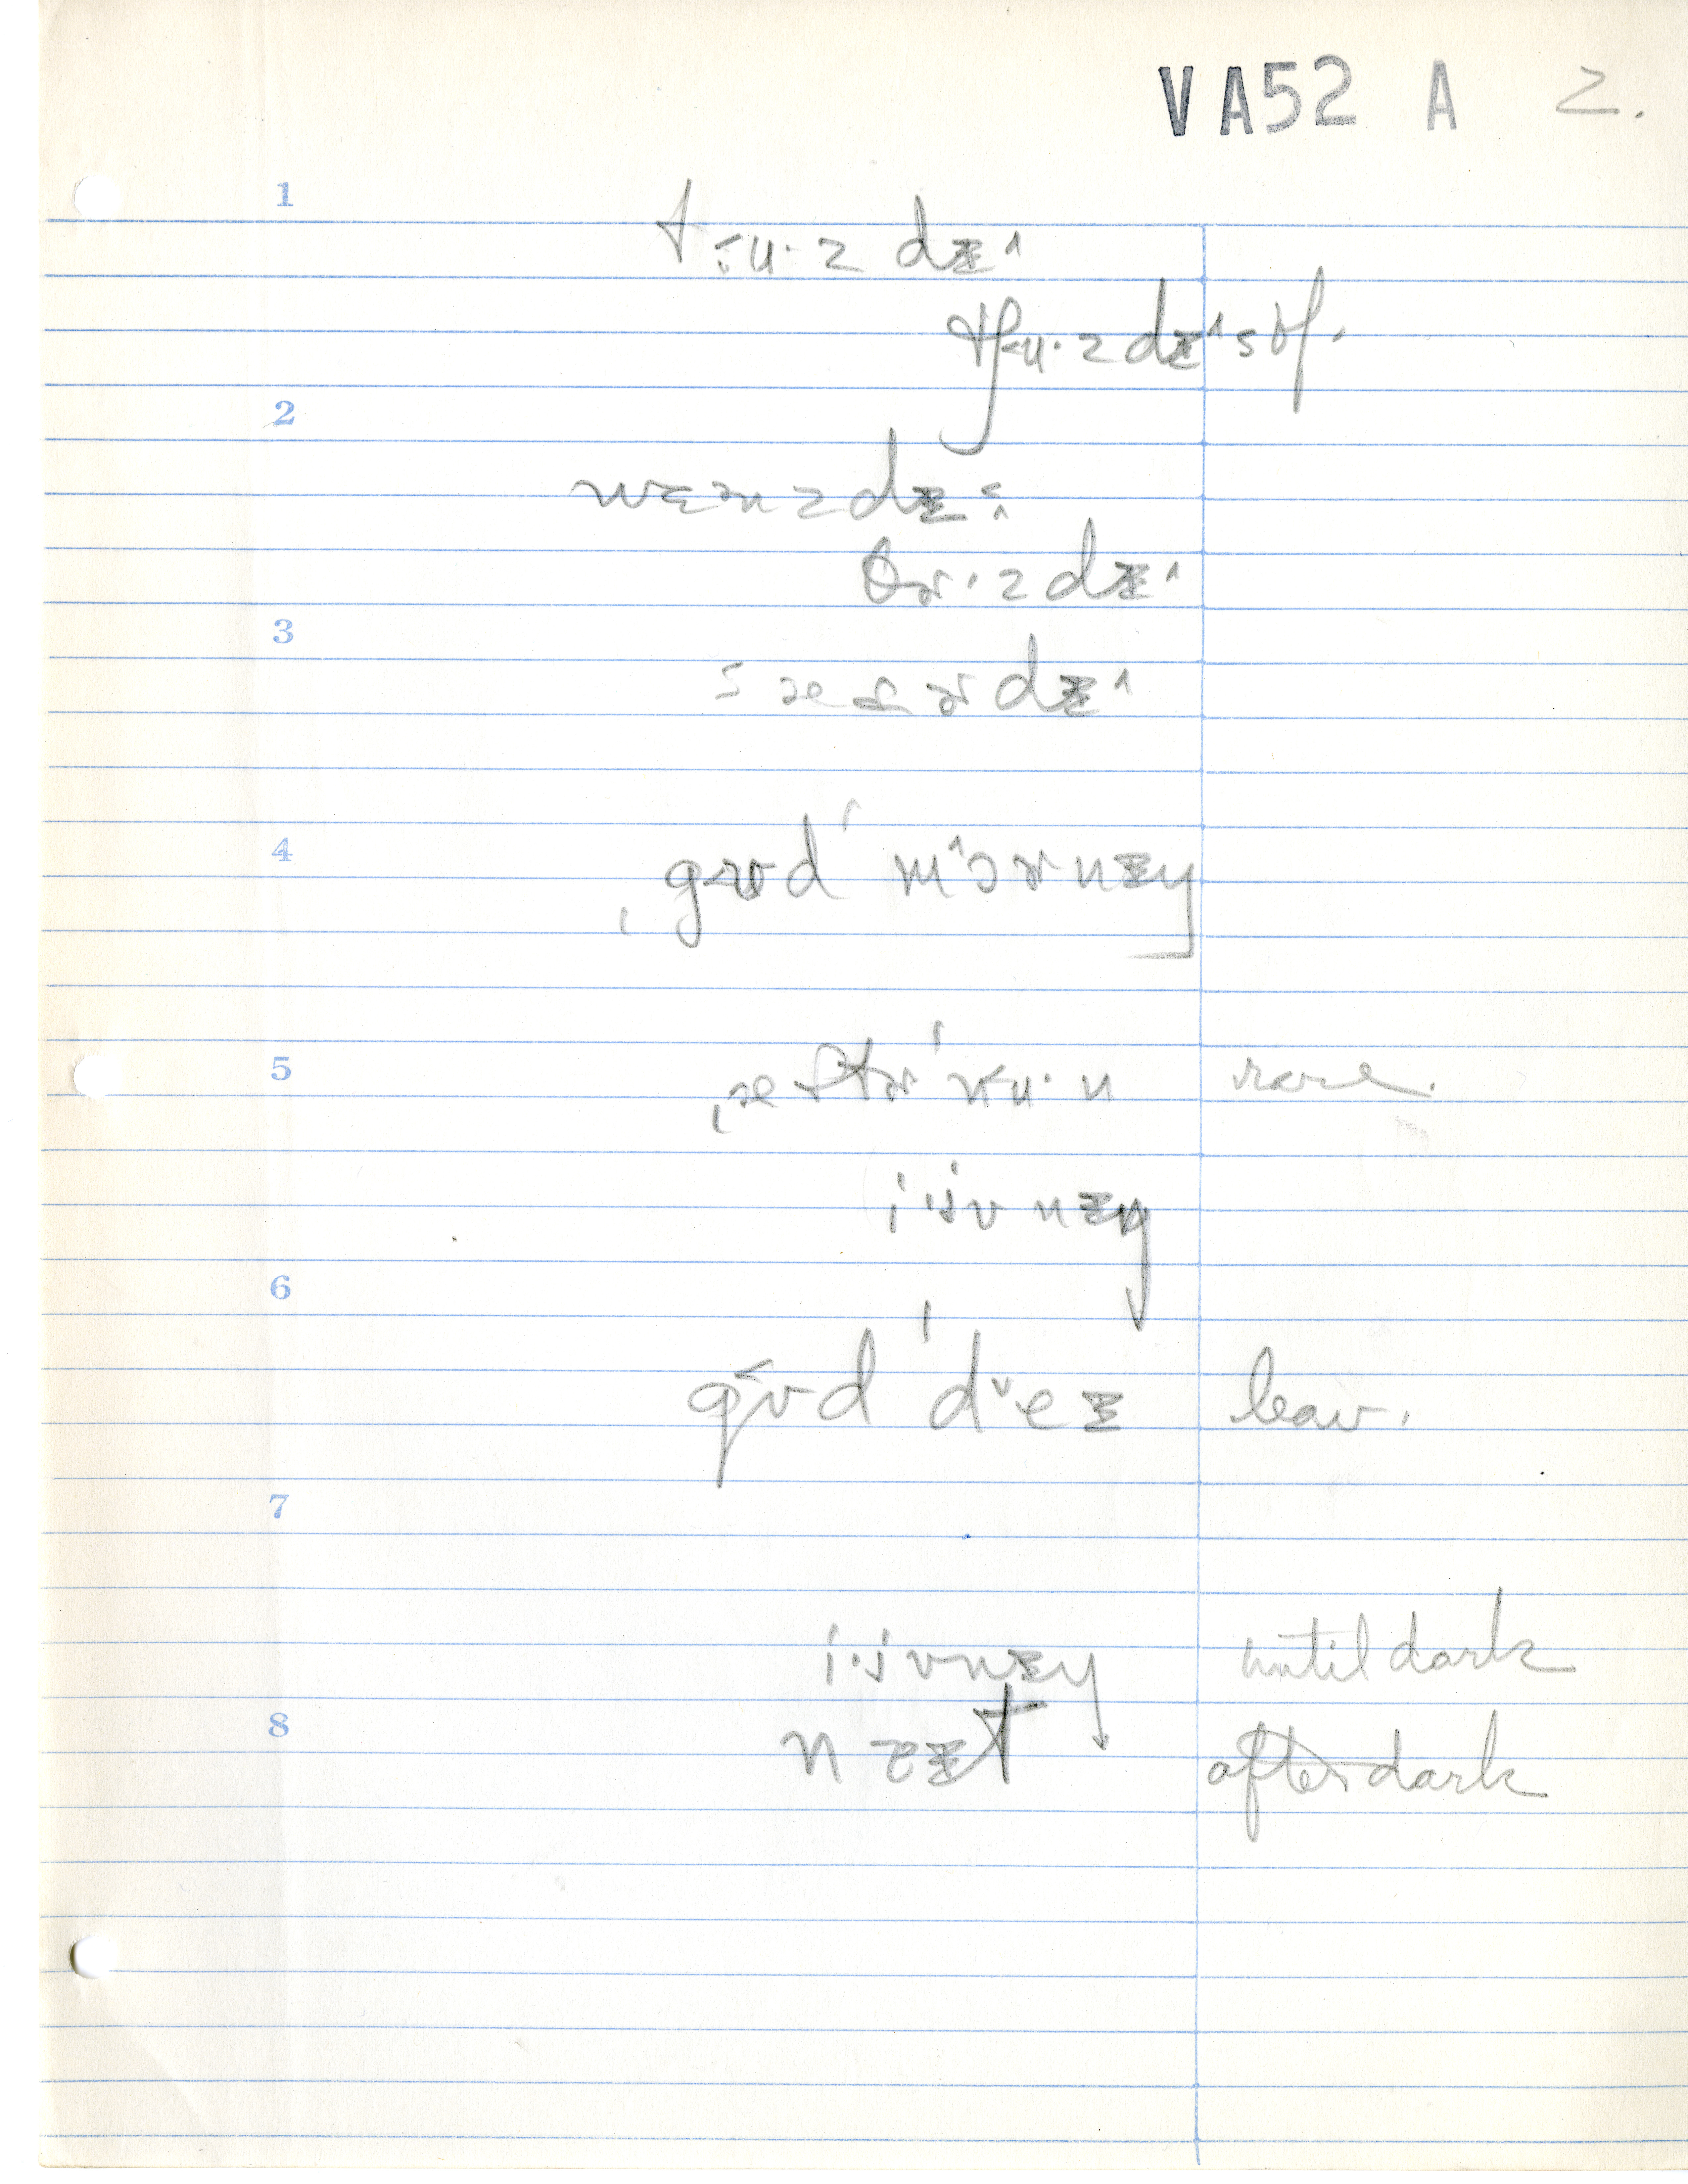 VA52 A 2.
1
tɨu·zdɪ˄
tʃu·zdɪ˄
2
wɛnzdɪ
θɚ·zdɪ˄
3
sæɾɚdɪ˄
4
ˌgʊdˈmɔ˄ɚnɪŋ
5
ˌæftɚˈnu·n rare.
i·vnɪŋ
6
gʊdˈde˅ɪ leav.
7
i·vnɪŋ until dark
8
neɪt after dark